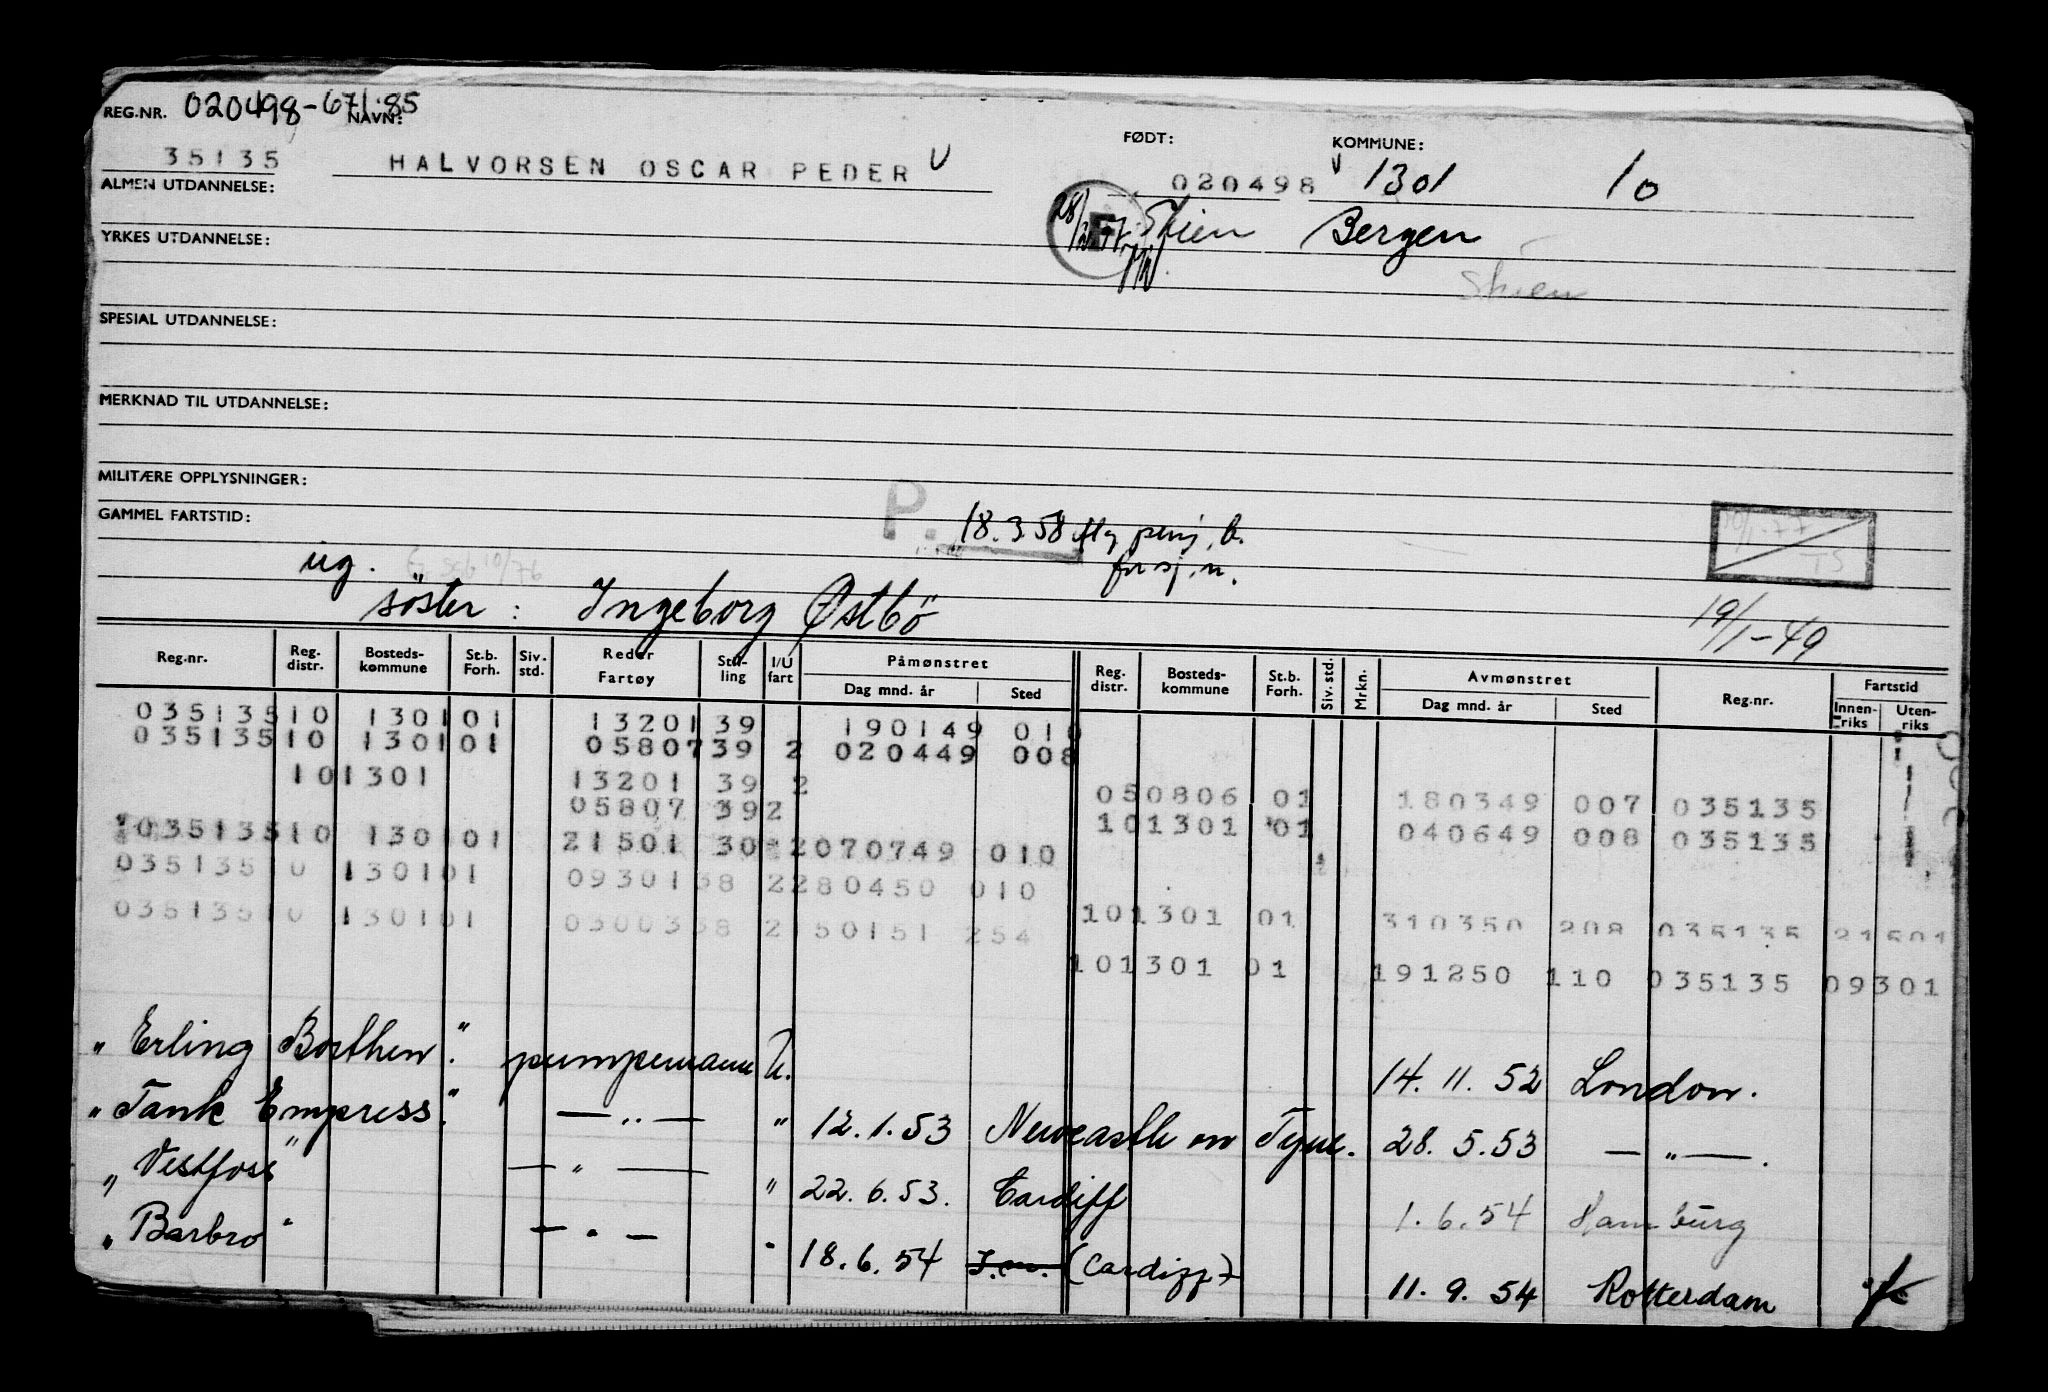 REG.NR. 020498-671.85
NAVN:
FØDT:
KOMMUNE:
35135 HALVORSEN OSCAR PEDER 020498 1301 10
ALMEN UTDANNELSE:
Skien Bergen
YRKES UTDANNELSE:
Skien
SPESIAL UTDANNELSE:
MERKNAD TIL UTDANNELSE:
MILITÆRE OPPLYSNINGER:
GAMMEL FARTSTID:
P. 18.3.58 pensj. b.
for sj. m.
ug.
TS
søster: Ingeborg Østbö
19/1-49
Reg.nr. Reg. distr. Bosteds-kommune St.b. Forh. Siv. std. Reder Fartøy Stilling I/U fart Påmønstret Dag mnd. år Sted Reg. distr. Bosteds-kommune St.b. Forh. Siv. std. Mrkn. Avmønstret Dag mnd. år Sted Reg.nr. Fartstid Innen-riks Uten-riks
035135 10 1301 01 13201 39 190149 010
035135 10 1301 01 05807 39 2 020449 008
10 1301 13201 39 2 050806 01 180349 007 035135
05807 39 2 101301 01 040649 008 035135
035135 10 1301 01 21501 30 2 070749 010
035135 10 1301 01 09301 38 2 280450 010
101301 01 310350 208 035135 21501
035135 10 1301 01 03003 38 2 150151 254
101301 01 191250 110 035135 09301
„Erling Borthen". pumpemann U. 14.11.52 London.
„Tank Empress". — „ — " 12.1.53 Newcastle on Tyne. 28.5.53 — „ —.
„Vestfoss" — „ — " 22.6.53. Cardiff 1.6.54 Hamburg
„Barbro" — „ — " 18.6.54 (Cardiff) 11.9.54 Rotterdam